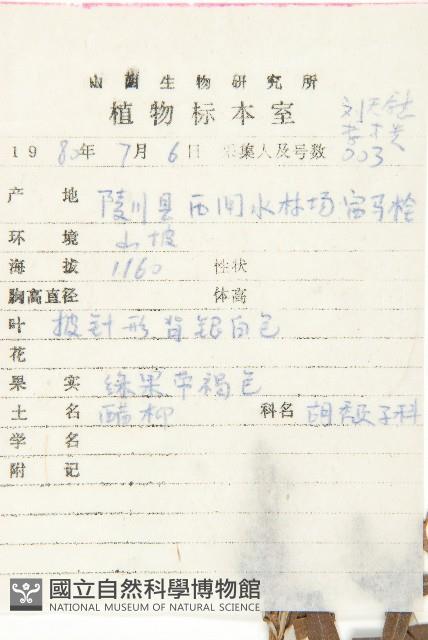 山西生物研究所
植物标本室
刘天慰
1980年7月6日 采集人及号数 003
产地 陵川县西闸水林场宿马栓
环境 山坡
海拔 1160 性状
胸高直径 体高
叶 披针形背银白色
花
果实 绿果带褐色
土名 醋柳 科名 胡颓子科
学名
附记
國立自然科學博物館
NATIONAL MUSEUM OF NATURAL SCIENCE